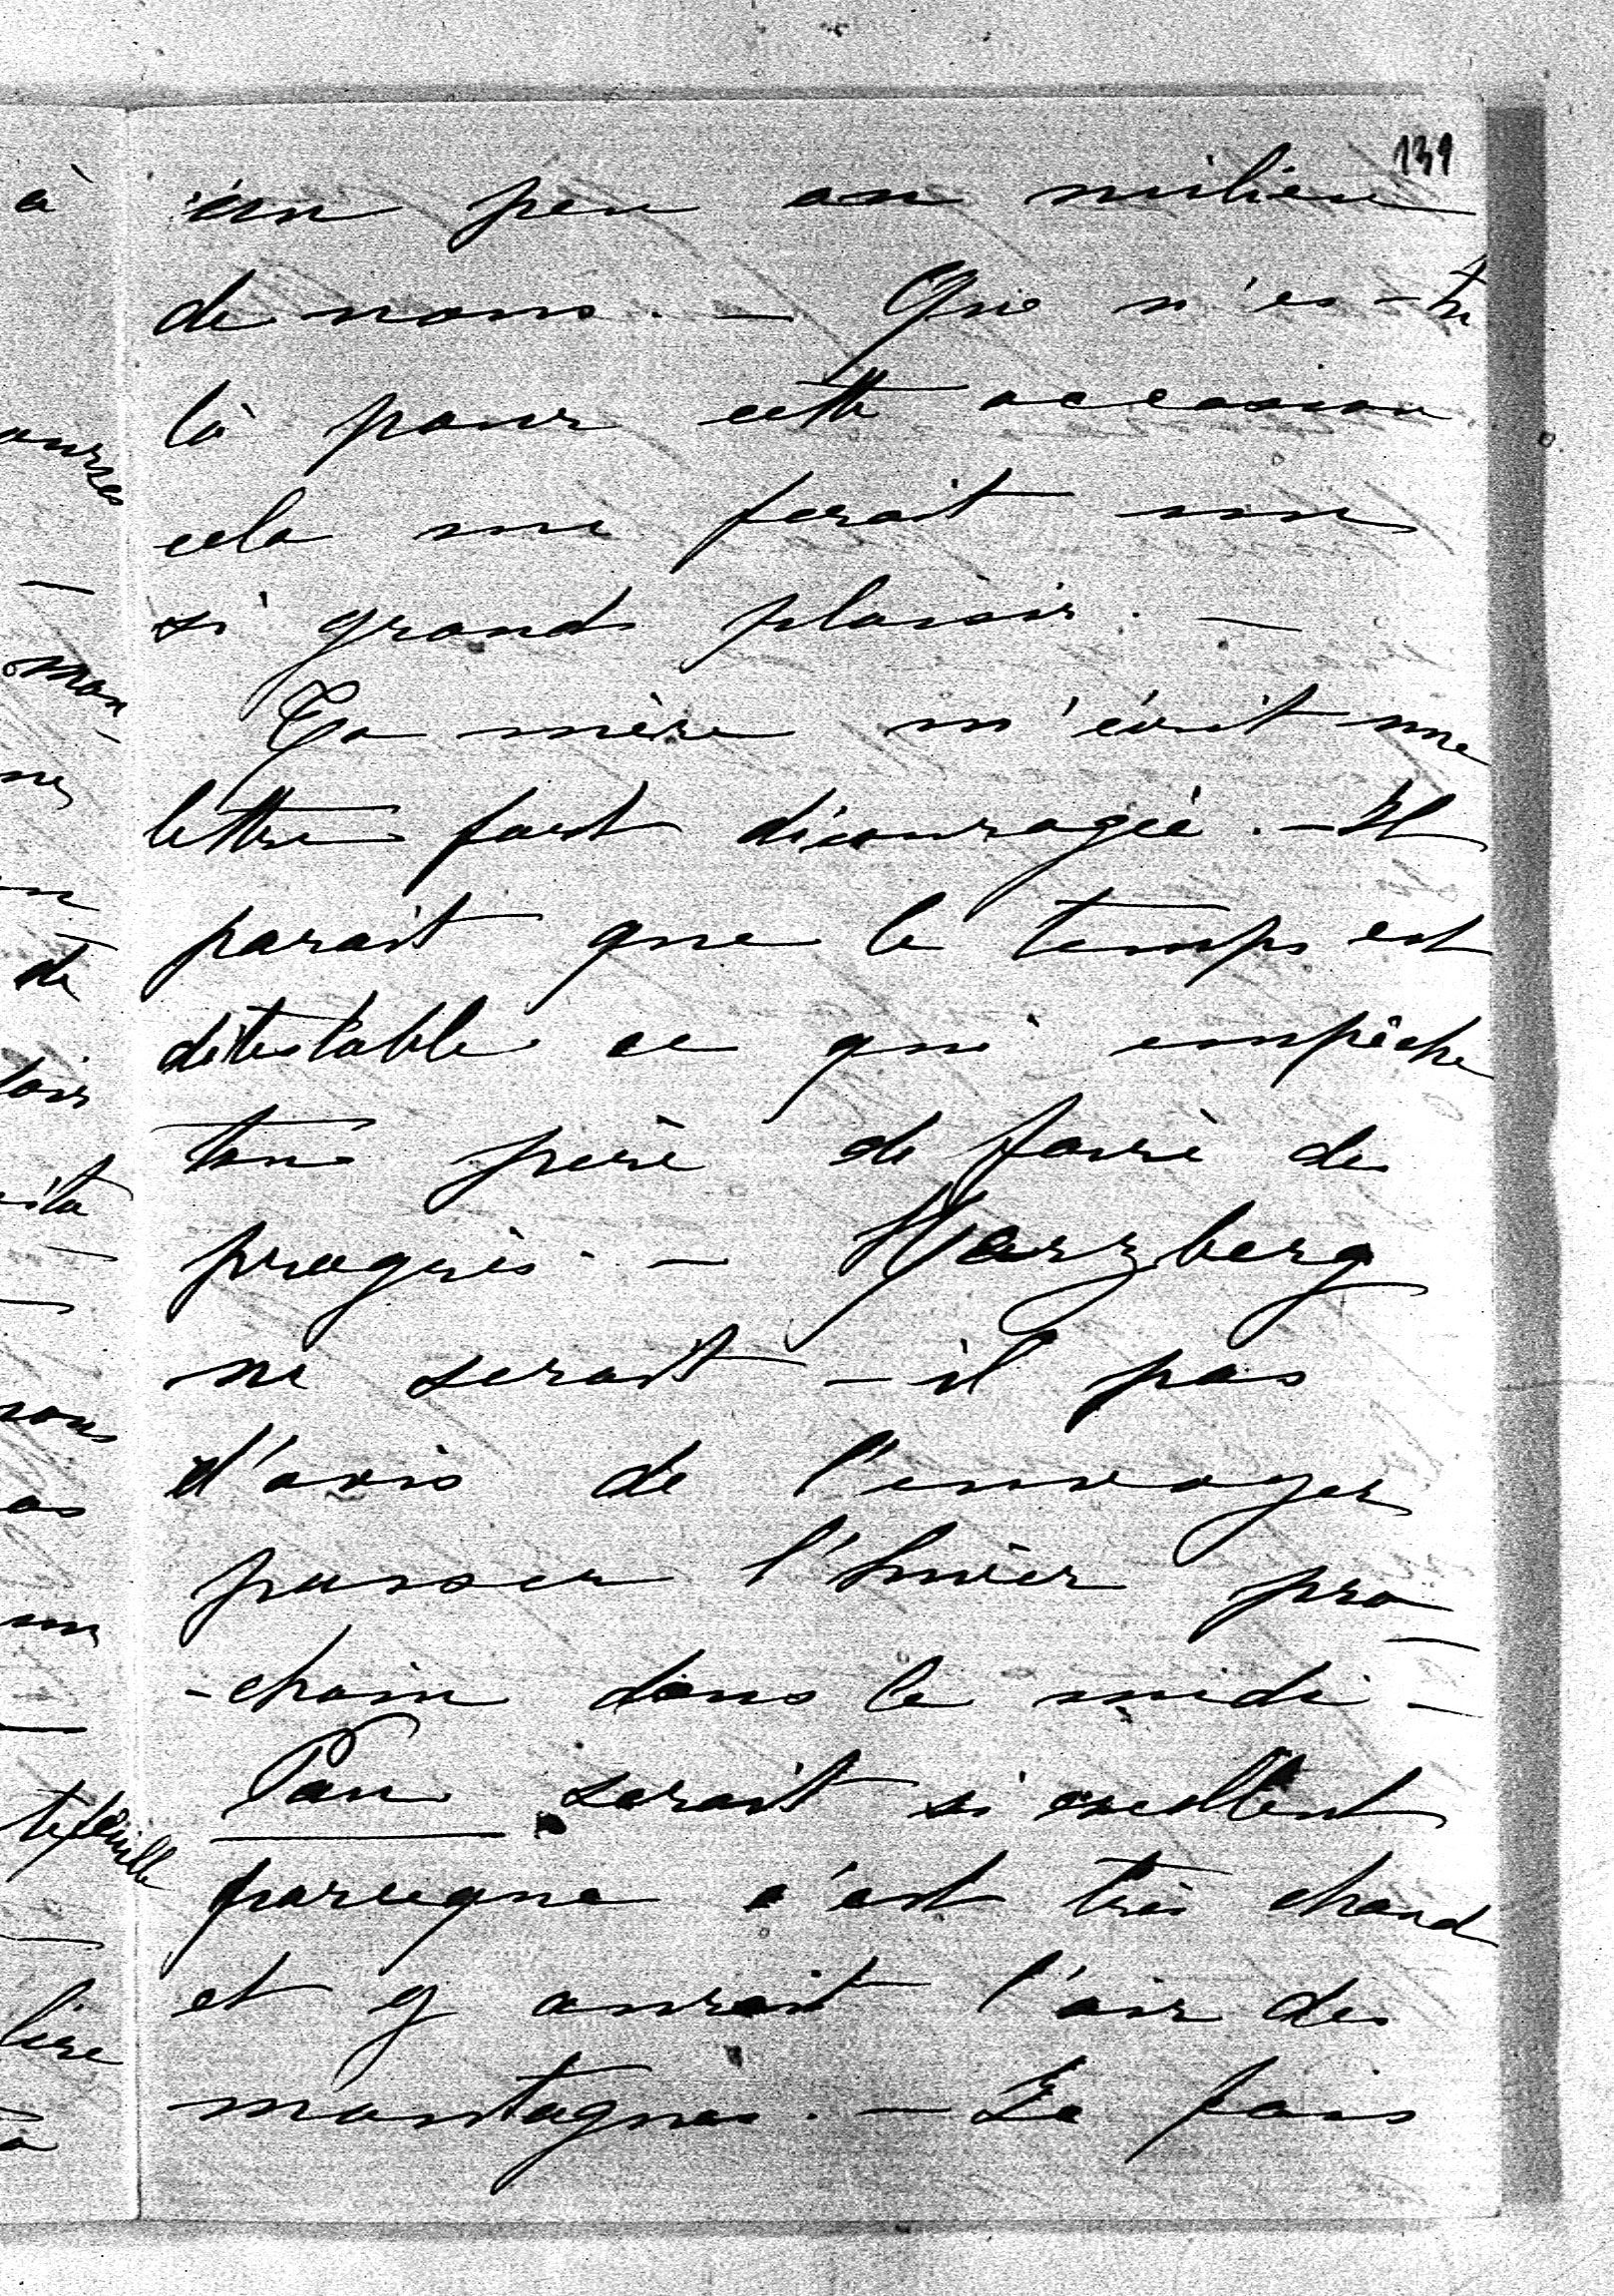 139
un peu au milieu
de nous. — Que n'es-tu
là pour cette occasion
cela me ferait un
si grand plaisir. —
Ta mère m'écrit une
lettre fort découragée. — Il
parait que le temps est
détestable ce qui empêche
ton père de faire des
progrès. — Herzberg
ne serait-il pas
d'avis de l'envoyer
passer l'hiver pro
-chain dans le midi —
Pau serait si excellent
parceque c'est très chaud
et y aurait l'air des
montagnes. — Je fais